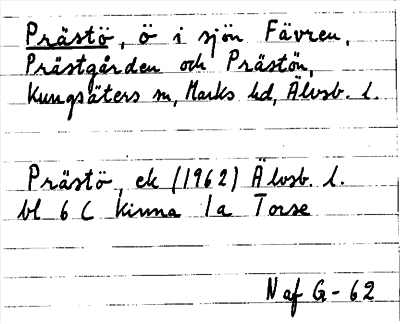 Prästö, ö i sjön Fävren,
Prästgården och Prästön,
Kungsäters sn, Marks hd, Älvsb. l.
Prästö, ek (1962) Älvsb. l.
bl 6 C Kinna 1a Torse
Naf G-62